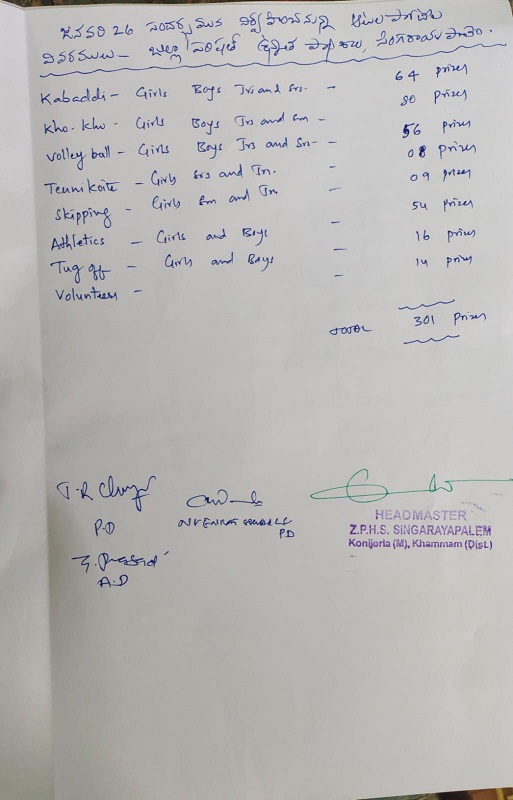 జనవరి 26 సందర్భముగ నిర్వహించుచున్న ఆటల పోటీల
వివరములు - జిల్లా పరిషత్ ఉన్నత పాఠశాల, సింగరాయపాలెం.
Kabaddi - Girls Boys Jrs and Srs. - 64 prizes
Kho.Kho - Girls Boys Jrs and Srs - 80 prizes
Volley ball - Girls Boys Jrs and Srs - 56 prizes
Tennikoite - Girls Srs and Jrs. - 08 prizes
Skipping - Girls Srs and Jrs - 09 prizes
Athletics - Girls and Boys - 54 prizes
Tug off - Girls and Boys - 16 prizes
Volunteers - - 14 prizes
TOTAL 301 prizes
P.D
PD
A.D
HEADMASTER
Z.P.H.S. SINGARAYAPALEM
Konijerla (M), Khammam (Dist.)